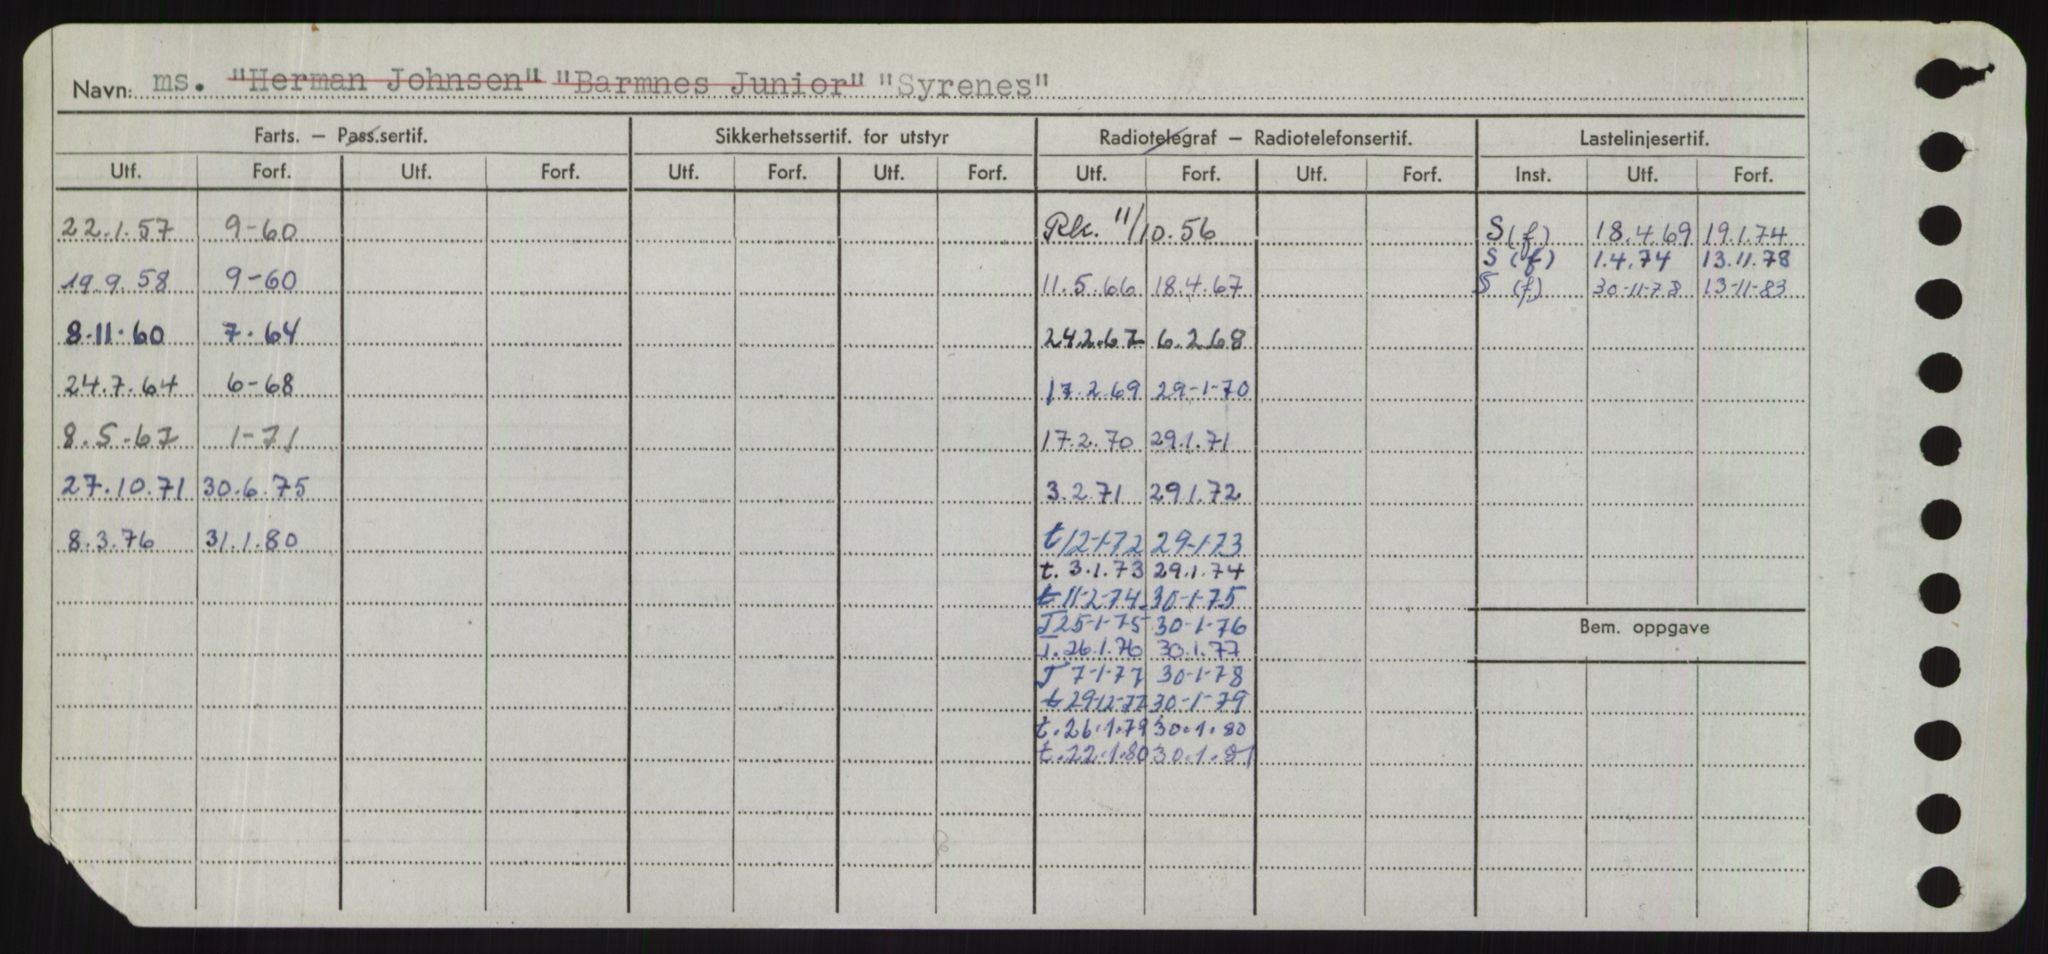 Navn: ms. "Herman Johnsen" "Barmnes Junior" "Syrenes"
Farts. — Pass.sertif. Sikkerhetssertif. for utstyr Radiotelegraf — Radiotelefonsertif. Lastelinjesertif.
Utf. Forf. Utf. Forf. Utf. Forf. Utf. Forf. Utf. Forf. Utf. Forf. Inst. Utf. Forf.
22.1.57 9-60 11/10.56 S(f) 18.4.69 19.1.74
S (f) 1.4.74 13.11.78
19.9.58 9-60 11.5.66 18.4.67 S (f) 30-11-78 13-11-83
8-11-60 7-64 24.2.67 6.2.68
24.7.64 6-68 17.2.69 29-1-70
8.5.67 1-71 17.2.70 29.1.71
27.10.71 30.6.75 3.2.71 29.1.72
8.3.76 31.1.80 t 12-1-72 29-1-73
t. 3.1.73 29.1.74
t 11-2-74 30-1-75
T 25-1-75 30-1-76
T. 26.1.76 30.1.77
T 7-1-77 30-1-78
t 29-12-77 30-1-79
t. 26.1.79 30.1.80
t. 22.1.80 30.1.81
Bem. oppgave